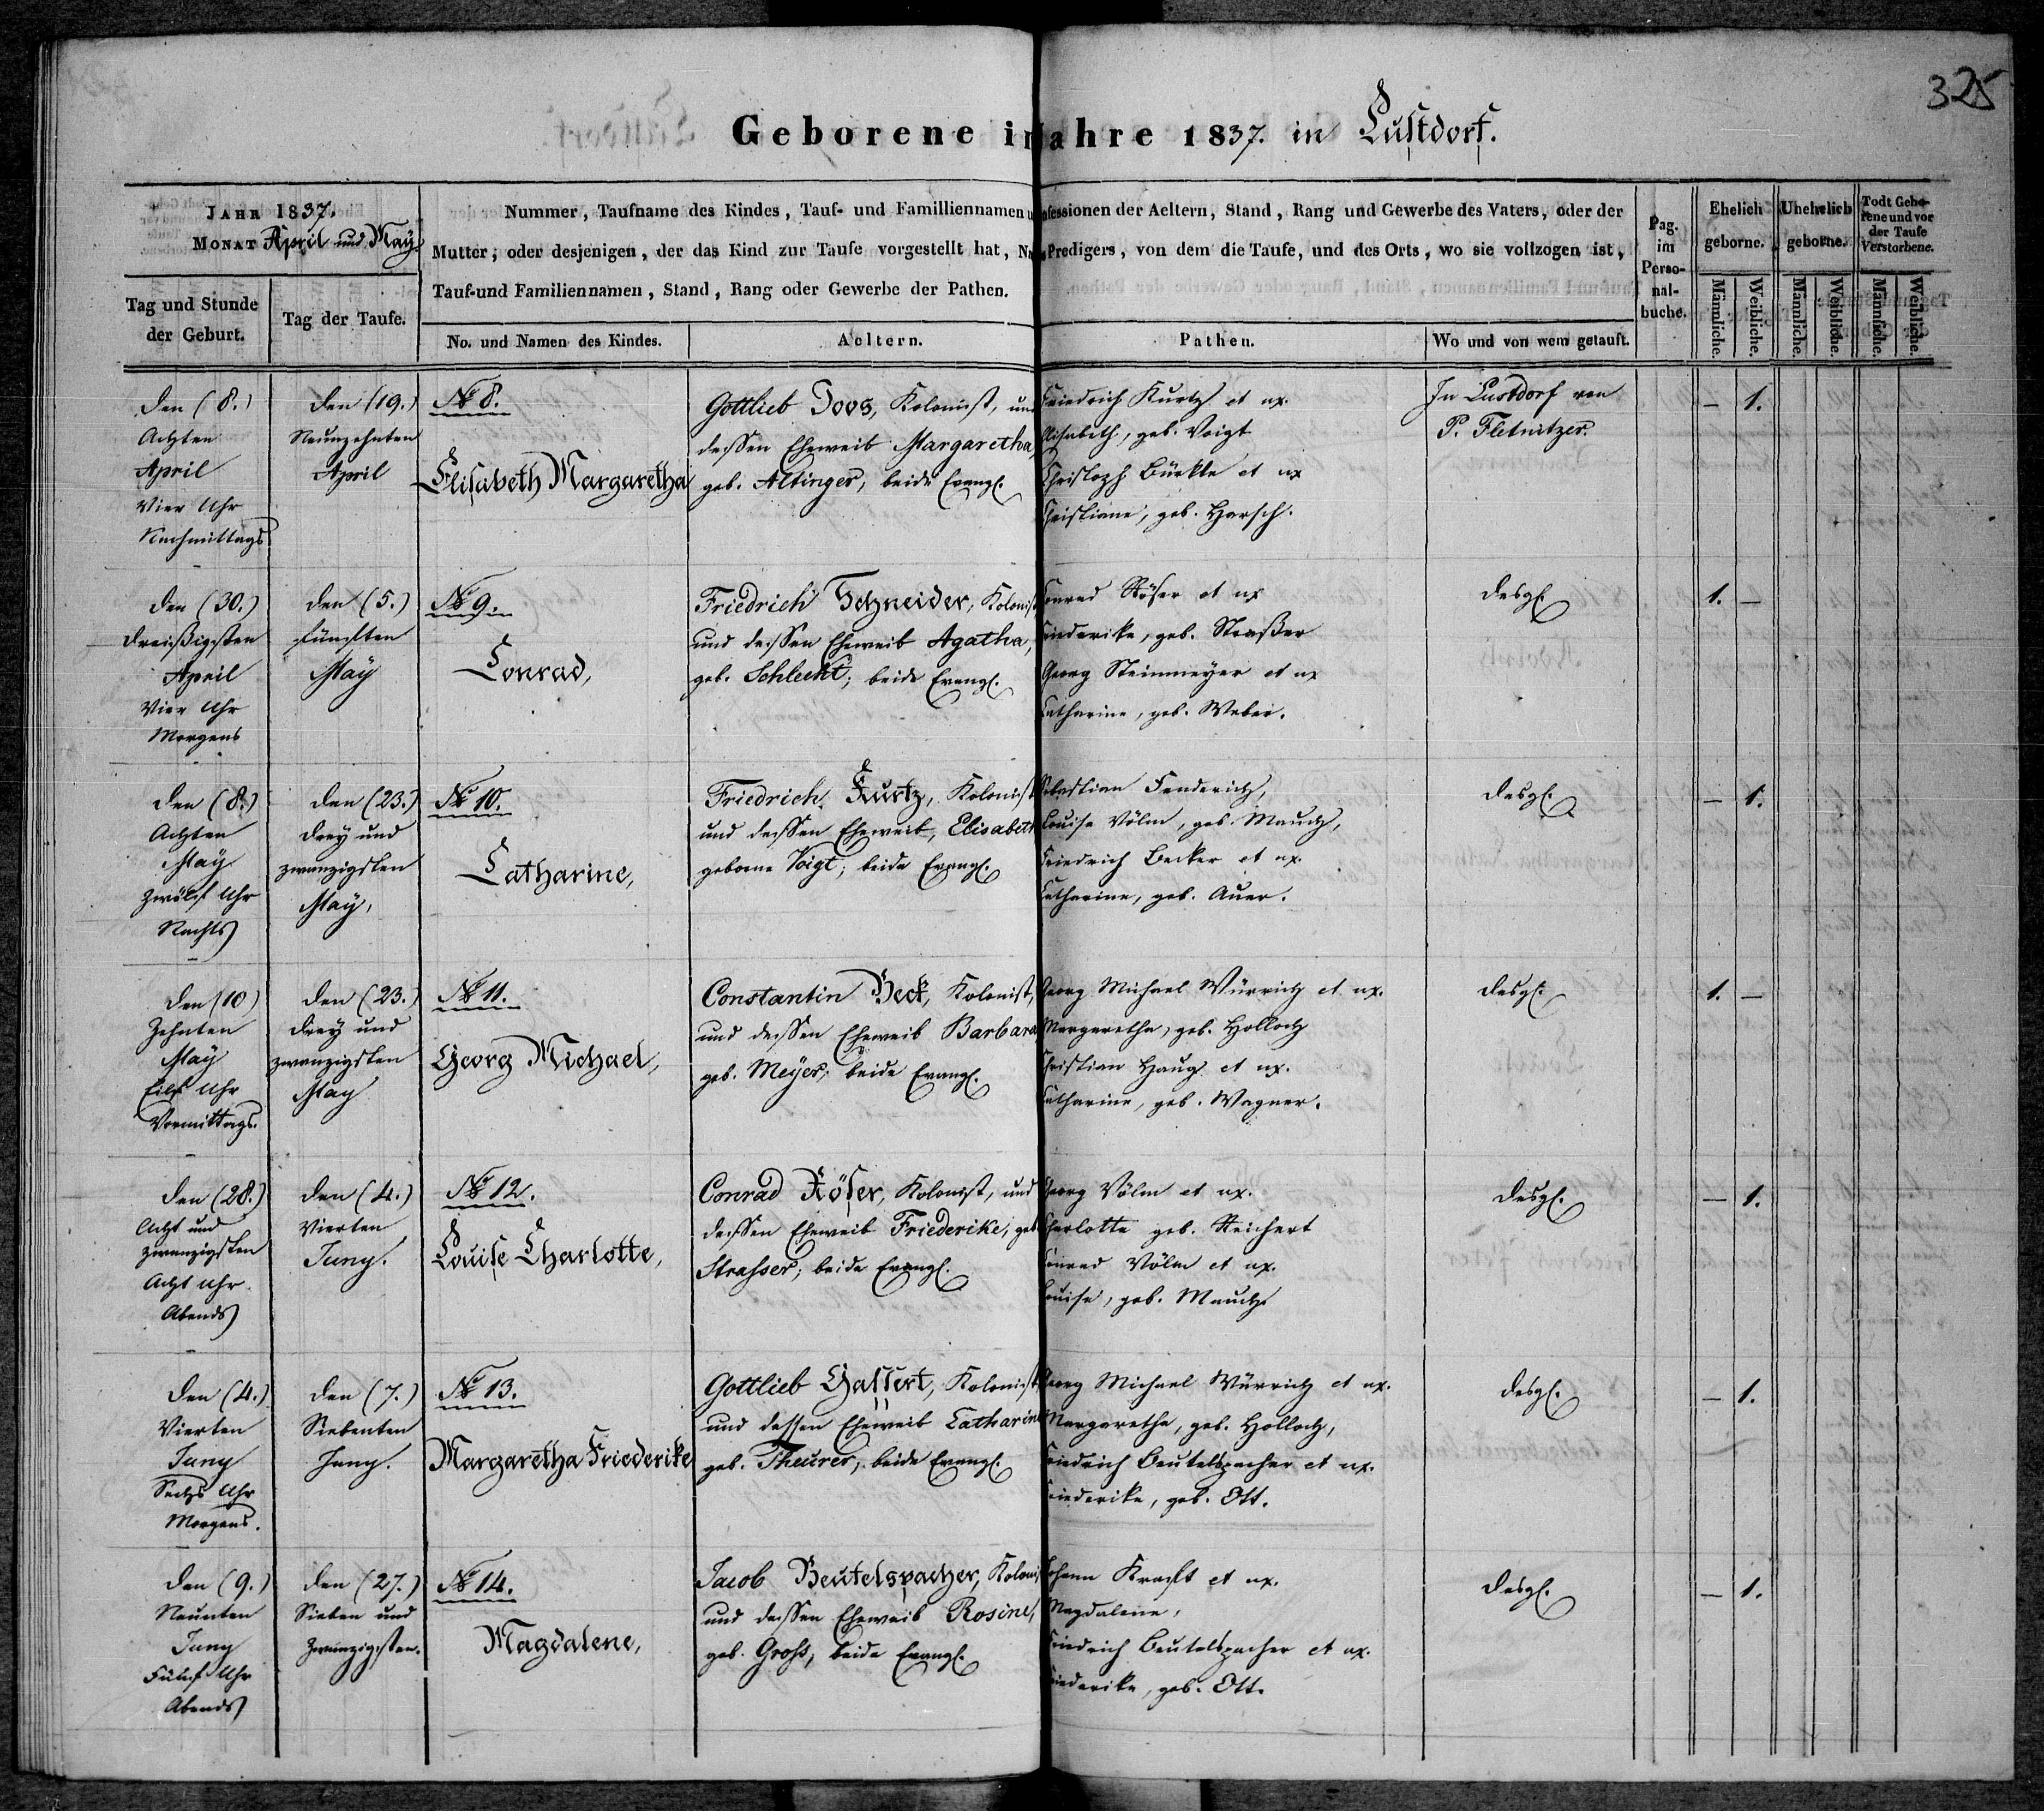 325
Geborene i Jahre 1837. in Lustdorf.
JAHR 1837.
MONAT April und May
Tag und Stunde der Geburt.
Tag der Taufe.
Nummer, Taufname des Kindes, Tauf- und Familliennamen u nfessionen der Aeltern, Stand, Rang und Gewerbe des Vaters, oder der
Mutter; oder desjenigen, der das Kind zur Taufe vorgestellt hat, N Predigers, von dem die Taufe, und des Orts, wo sie vollzogen ist,
Tauf-und Familiennamen, Stand, Rang oder Gewerbe der Pathen.
No. und Namen des Kindes.
Aeltern.
Pathen.
Wo und von wem getauft.
Pag. im Perso-nal-buche.
Ehelich geborne.
Unehelich geborne.
Todt Gebo-rene und vor der Taufe Verstorbene.
Männliche.
Weibliche.
Männliche.
Weibliche.
Männliche.
Weibliche.
den (8.)
Achten
April
Vier Uhr
Nachmittags
den (19.)
Neunzehnten
April
No 8.
Elisabeth Margaretha
Gottlieb Joos, Kolonist, und
dessen Eheweib Margaretha
geb. Altinger, beide Evangl.
Friedrich Kurtz et ux.
Elisabeth, geb. Voigt
Christoph Bürkle et ux
Christiane, geb. Harsch.
In Lustdorf von
P. Fletnitzer.
– 1.
den (30.)
dreißigsten
April
Vier Uhr
Morgens
den (5.)
fünften
May
No 9.
Conrad,
Friedrich Schneider, Kolonist
und dessen Eheweib Agatha,
geb. Schlecht; beide Evangl.
Conrad Röser et ux
Friederike, geb. Straßer
Georg Steinmeyer et ux
Catharine, geb. Weber.
desgl.
1. –
den (8.)
Achten
May
Zwölf Uhr
Nachts
den (23.)
drey und
zwanzigsten
May,
No 10.
Catharine,
Friedrich Kurtz, Kolonist
und dessen Eheweib, Elisabeth
geborne Voigt; beide Evangl.
Sebastian Fenderich,
Louise Völm, geb. Mauch,
Friedrich Becker et ux.
Catharine, geb. Auer.
desgl.
– 1.
den (10)
Zehnten
May
Eilf Uhr
Vormittags.
den (23.)
drey und
zwanzigsten
May
No 11.
Georg Michael,
Constantin Beck, Kolonist,
und dessen Eheweib Barbara
geb. Meyer; beide Evangl.
Georg Michael Würrich et ux.
Margaretha, geb. Holloch
Christian Haug et ux.
Catharine, geb. Wagner.
desgl.
1. –
den (28.)
Acht und
zwanzigsten
Acht Uhr
Abends
den (4.)
Vierten
Juny.
No 12.
Louise Charlotte,
Conrad Röser, Kolonist, und
dessen Eheweib Friederike, geb
Strasser; beide Evangl.
Georg Völm et ux.
Charlotte geb. Reichert
Conrad Völm et ux.
Louise, geb. Mauch
desgl.
– 1.
den (4.)
Vierten
Juny
Sechs Uhr
Morgens.
den (7.)
Siebenten
Juny.
No 13.
Margaretha Friederike
Gottlieb Gassert, Kolonist
und dessen Eheweib Catharine
geb. Theurer, beide Evangl.
Georg Michael Würrich et ux.
Margaretha, geb. Holloch,
Friedrich Beutelspacher et ux.
Friederike, geb. Ott.
desgl.
– 1.
den (9.)
Neunten
Juny
Fünf Uhr
Abends
den (27.)
Sieben und
zwanzigsten.
No 14.
Magdalene,
Jacob Beutelspacher, Kolonist
und dessen Eheweib Rosine,
geb. Gross, beide Evangl.
Johann Kraft et ux.
Magdalene,
Friedrich Beutelspacher et ux.
Friederike, geb. Ott.
desgl.
– 1.